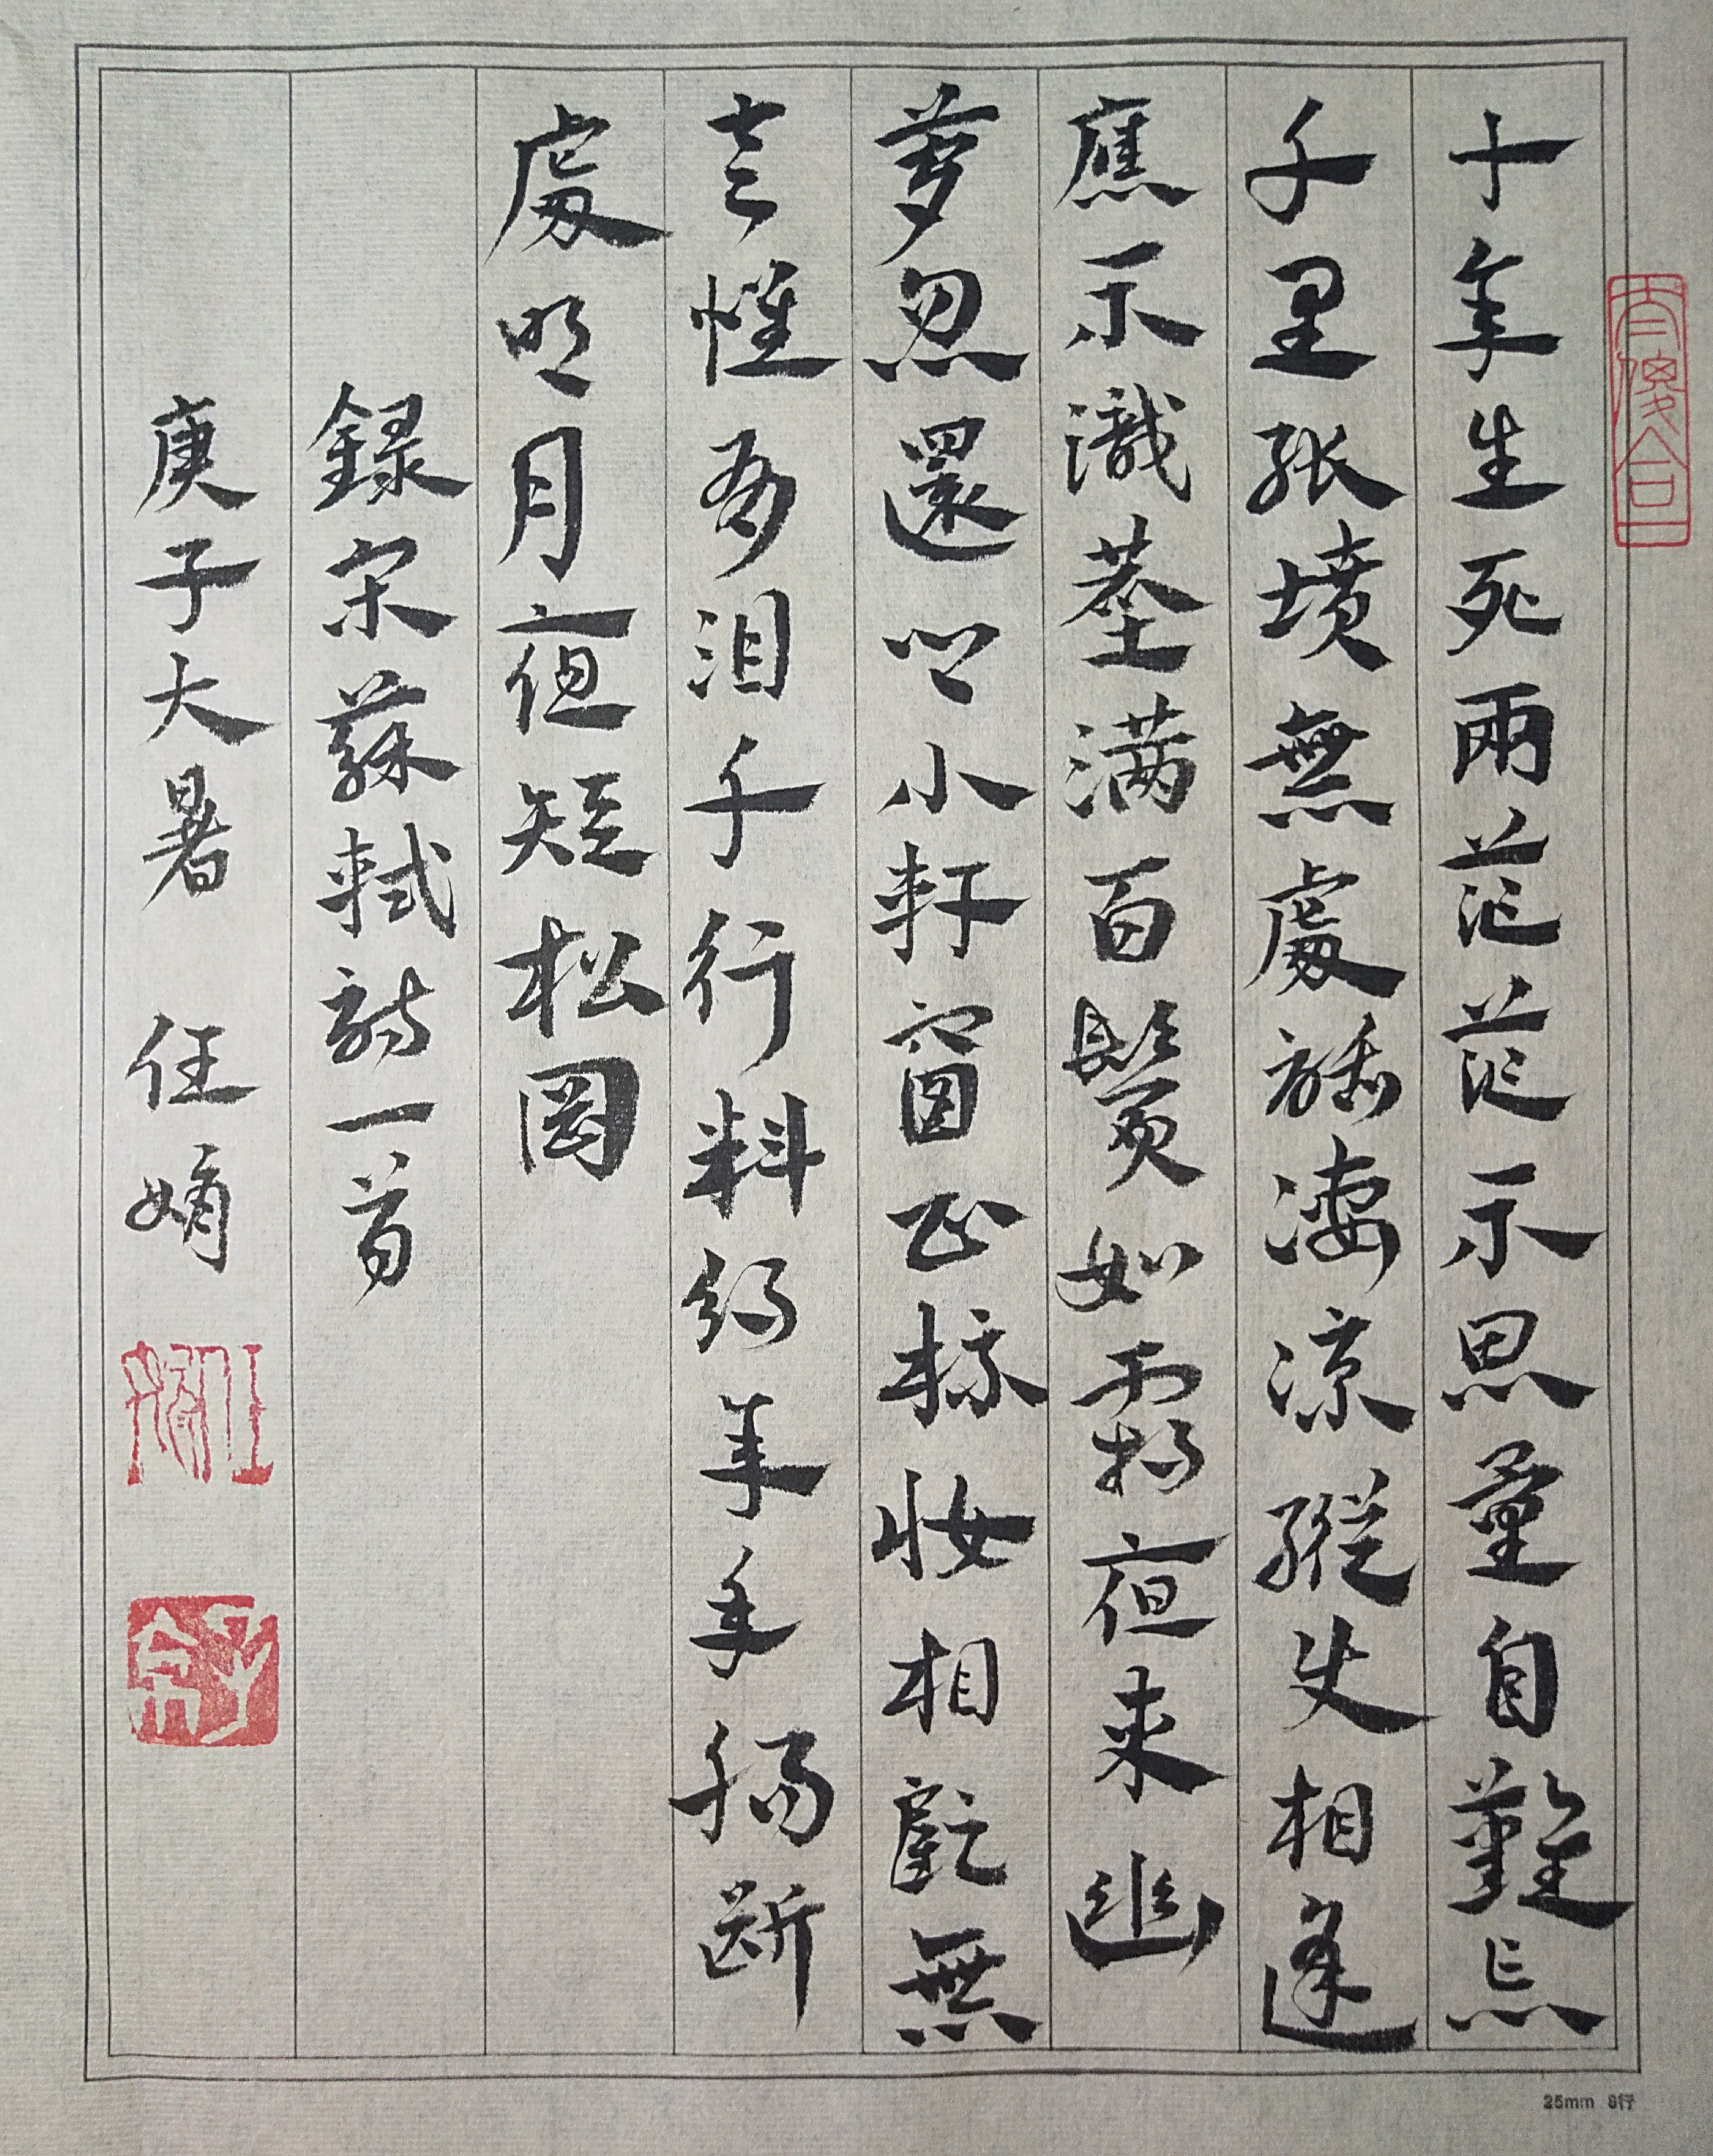 十年生死兩茫茫不思量自難忘
千里孤墳無處話淒涼縱使相逢
應不識塵滿面鬢如霜夜來幽
夢忽還鄉小軒窗正梳妝相顧無
言惟有淚千行料得年年腸斷
處明月夜短松岡
錄宋蘇軾詞一首
庚子大暑 任嫡
25mm 8行